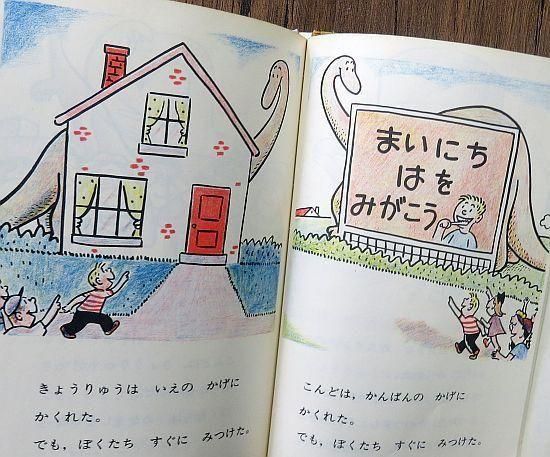 きょうりゅうは いえの かげに
かくれた。
でも, ぼくたち すぐに みつけた。
まいにち
はを
みがこう
こんどは, かんばんの かげに
かくれた。
でも, ぼくたち すぐに みつけた。